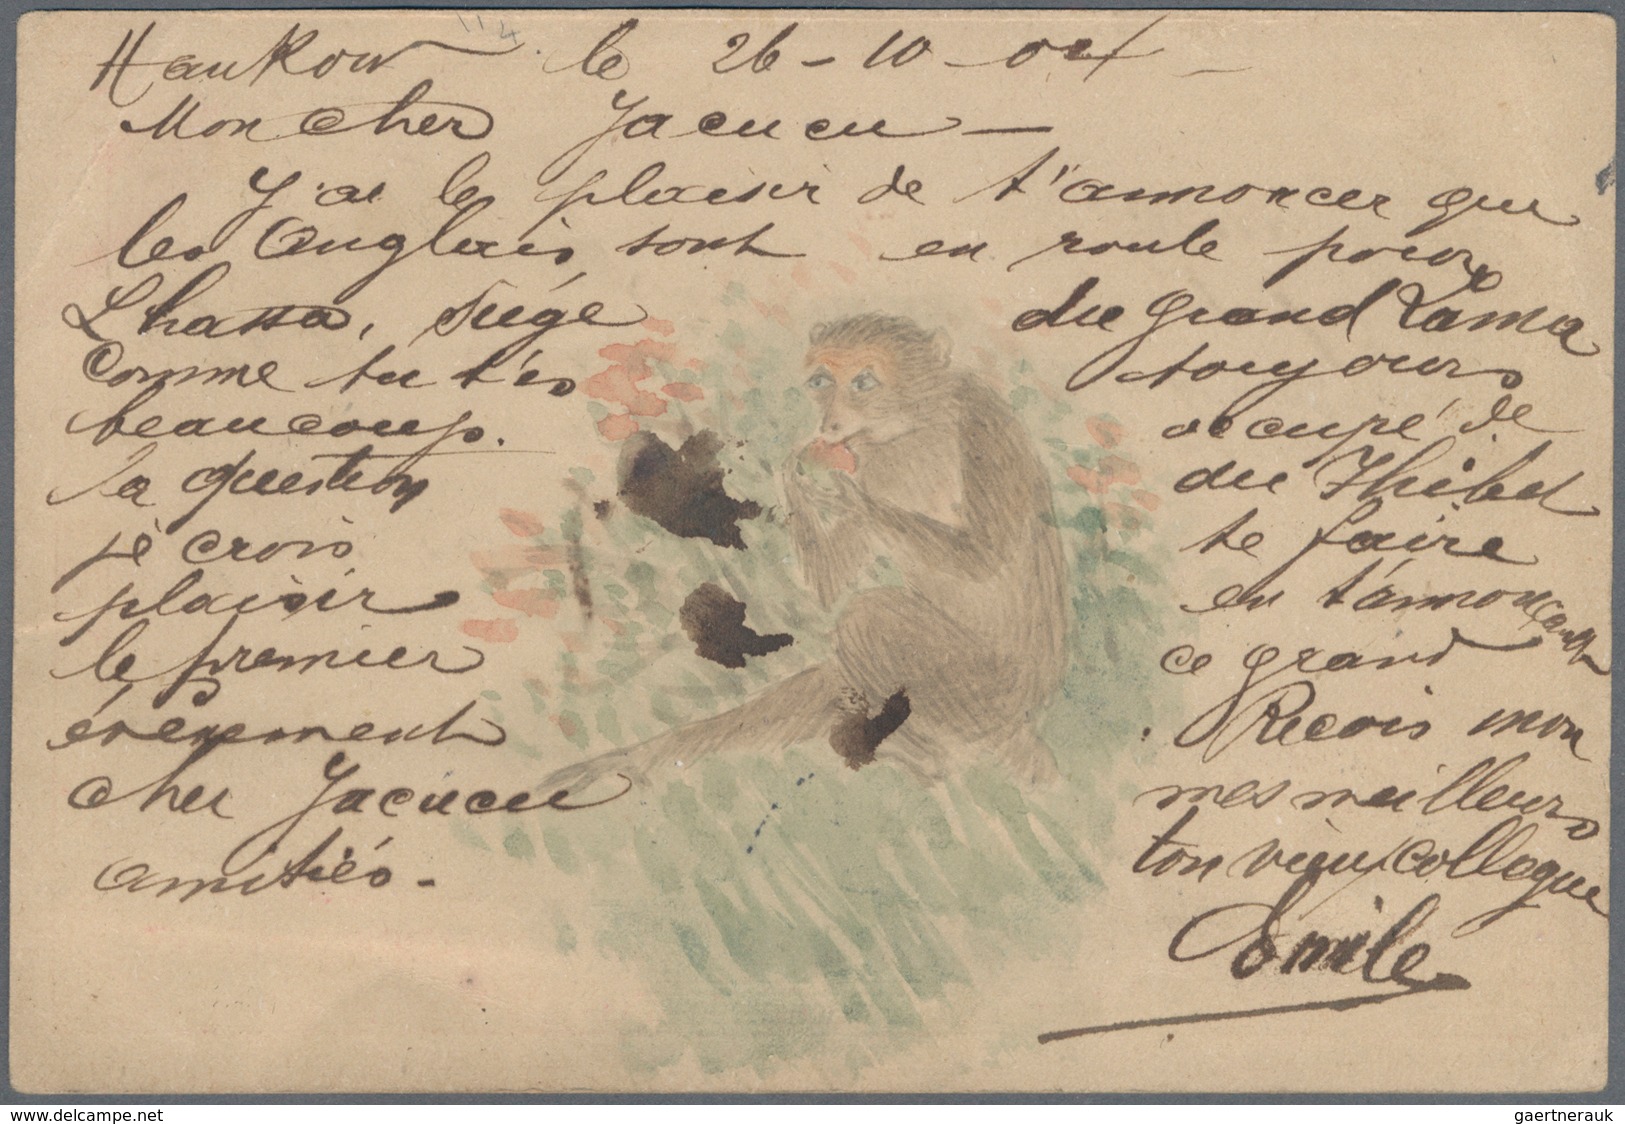 Hankow le 26-10-04
Mon cher Jacucu —
J'ai le plaisir de t'annoncer que
les Anglais sont en route pour
Lhassa, siége du grand Lama
Comme tu t'es toujours
beaucoup occupé de
la question du Thibet
je crois te faire
plaisir en t'annonçant
le premier ce grand
évènement. Recois mon
cher Jacucu mes meilleurs
amitiés. ton vieux collegue
Emile
www.delcampe.net
gaertnerauk